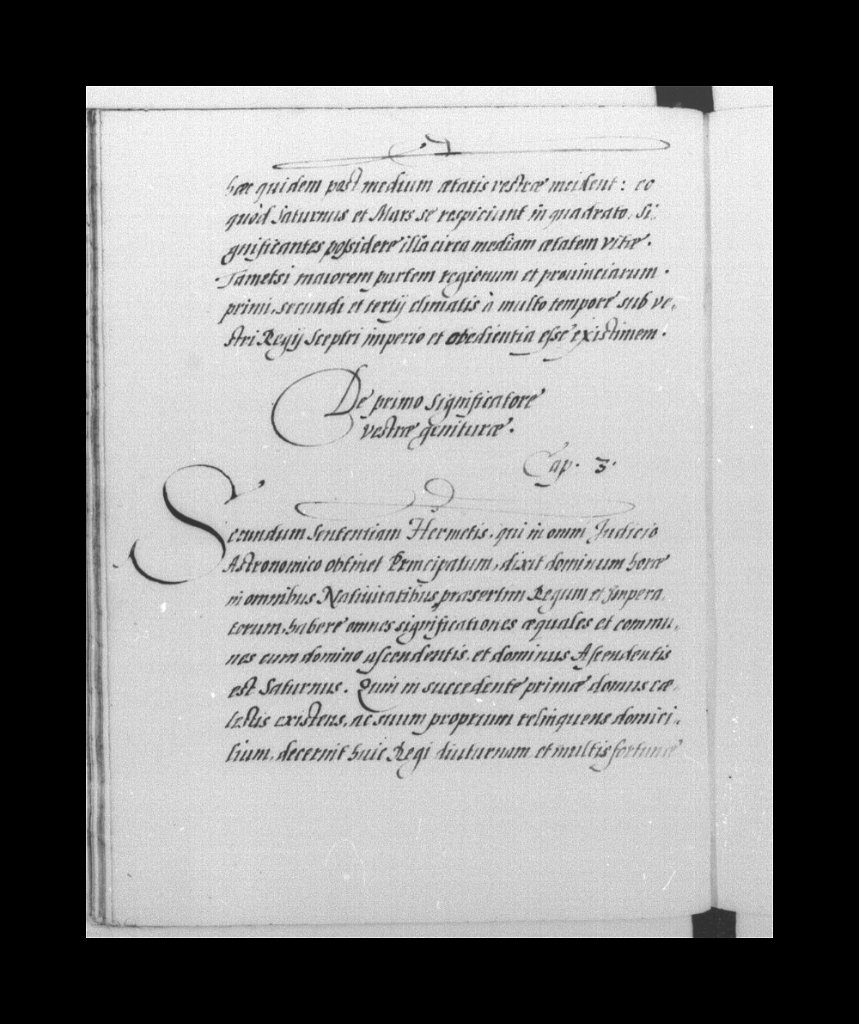 hæc quidem post medium ætatis vestræ incident: eo
quòd Saturnus et Mars se respiciunt in quadrato, Si,
gnificantes possidere illa circa mediam ætatem vitæ.
Tametsi maiorem partem regionum et prouinciarum
primi, secundi et tertij climatis à multo tempore sub ve,
stri Regij Sceptri imperio et obedientia esse existimem.
De primo significatore
vestræ genituræ.
Cap. 3.
Secundum sententiam Hermetis, qui in omni Judicio
Astronomico obtinet Principatum, dixit dominum horæ
in omnibus Natiuitatibus, præsertim Regum et Impera,
torum, habere omnes significationes æquales et commu,
nes cum domino ascendentis, et dominus Ascendentis
est Saturnus. Quum in succedente primæ domus cæ,
lestis existens, ac suum proprium relinquens domici,
lium, decernit huic Regi diuturnam et multis fortunæ